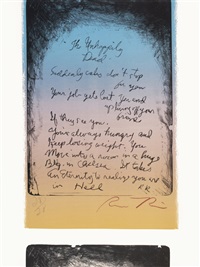 "The Unhappily
Dead"
Suddenly cabs don't stop
for you
Your job gets lost. You end
up
grave
If they see you.
You're always hungry and
keep losing weight. You
Move into a room in a huge
Bldg. in Chelsea. It takes
an eternity to realize you're
in Hell